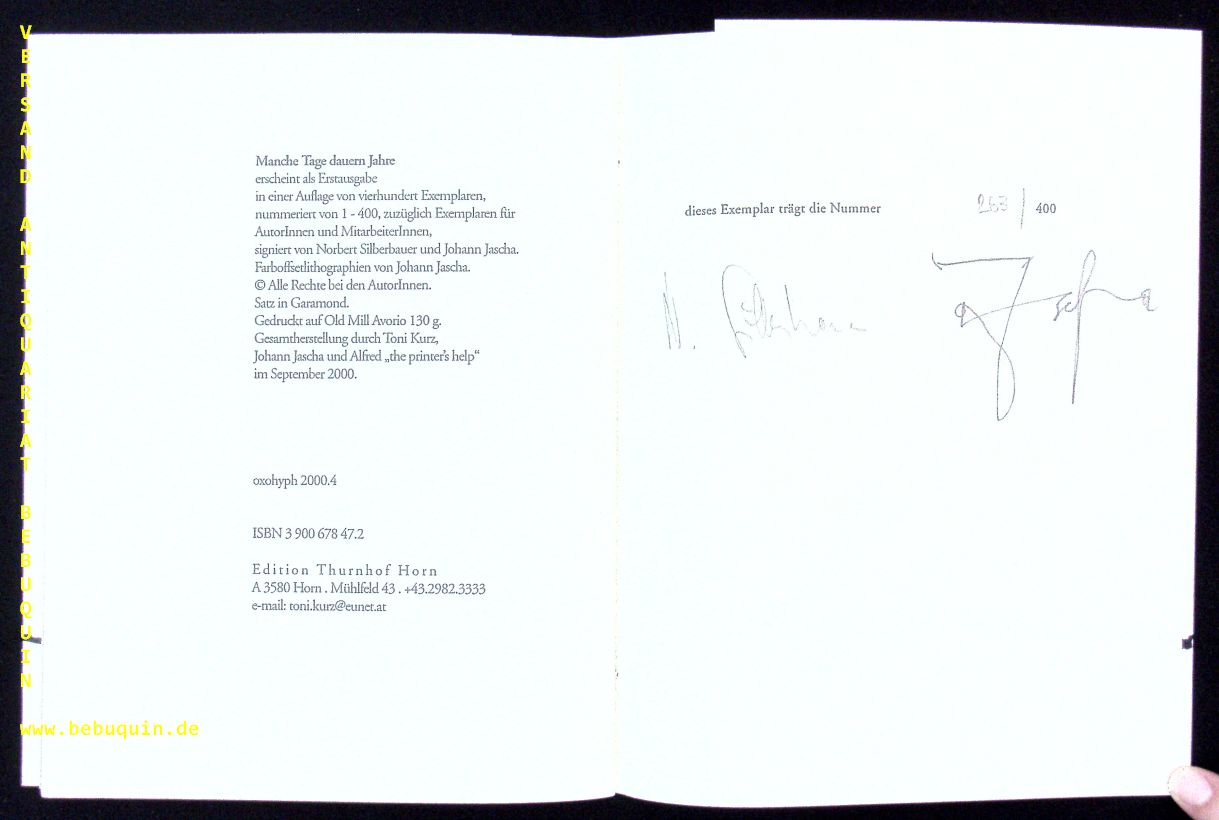 VERSAND ANTIQUARIAT BEBUQUIN
www.bebuquin.de
Manche Tage dauern Jahre
erscheint als Erstausgabe
in einer Auflage von vierhundert Exemplaren,
nummeriert von 1 - 400, zuzüglich Exemplaren für
AutorInnen und MitarbeiterInnen,
signiert von Norbert Silberbauer und Johann Jascha.
Farboffsetlithographien von Johann Jascha.
© Alle Rechte bei den AutorInnen.
Satz in Garamond.
Gedruckt auf Old Mill Avorio 130 g.
Gesamtherstellung durch Toni Kurz,
Johann Jascha und Alfred „the printer's help“
im September 2000.
oxohyph 2000.4
ISBN 3 900 678 47.2
Edition Thurnhof Horn
A 3580 Horn . Mühlfeld 43 . +43.2982.3333
e-mail: toni.kurz@eunet.at
dieses Exemplar trägt die Nummer 263 / 400
N. Silberbauer
Jascha